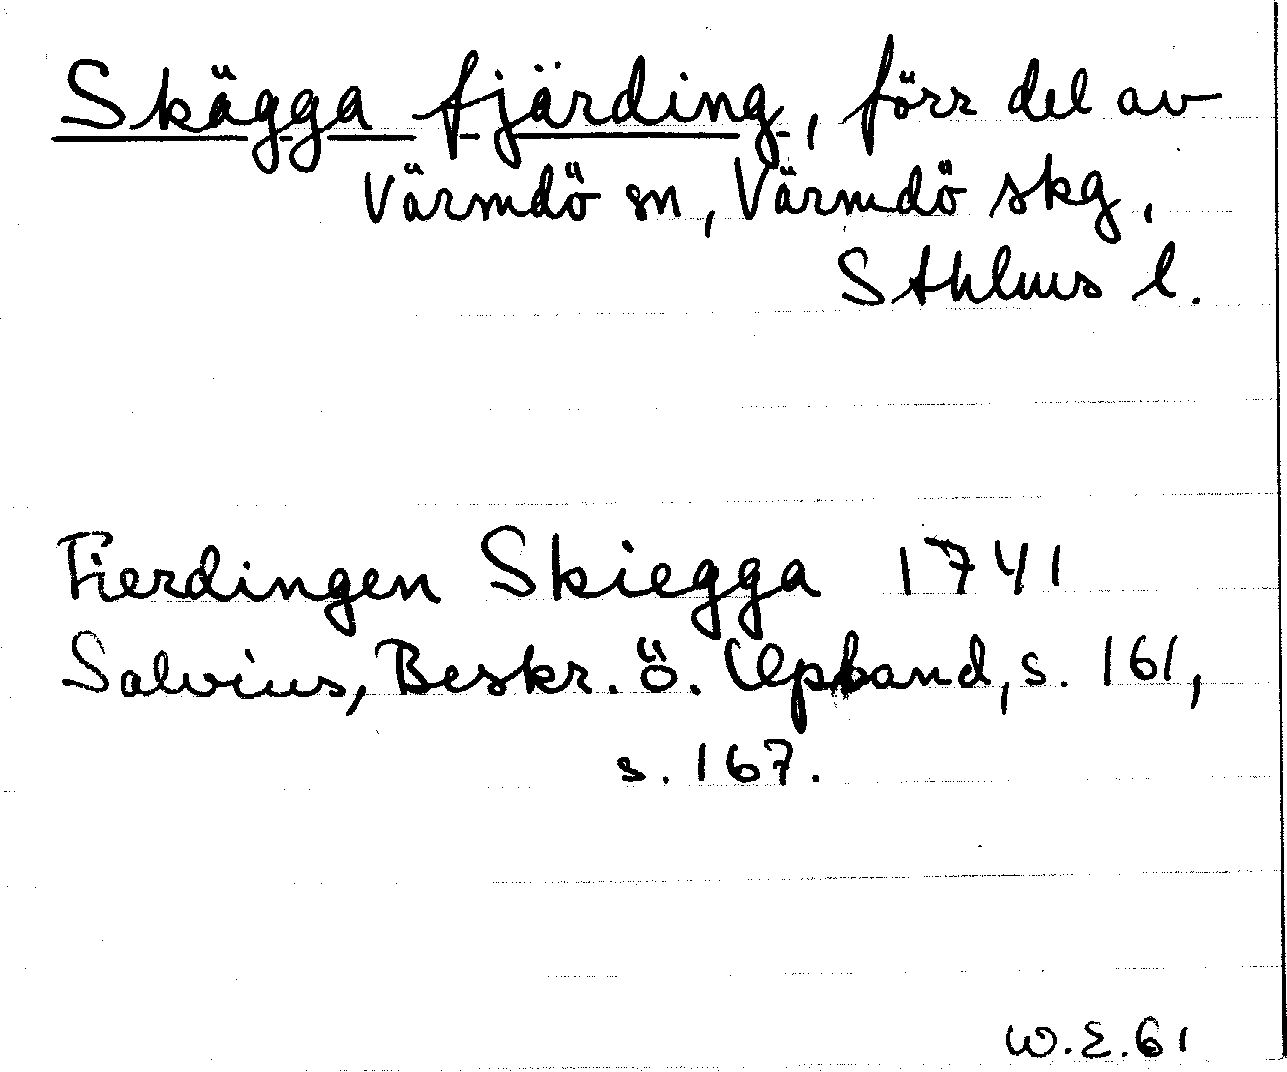 Skägga fjärding, förr del av
Värmdö sn, Värmdö skg,
Sthlms l.
Fierdingen Skiegga 1741
Salvius, Beskr. ö. Upland, s. 161,
s. 167.
W.E.61